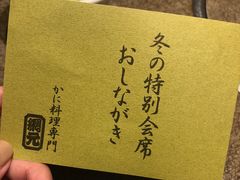 冬の特別会席
おしながき
かに料理専門
網元